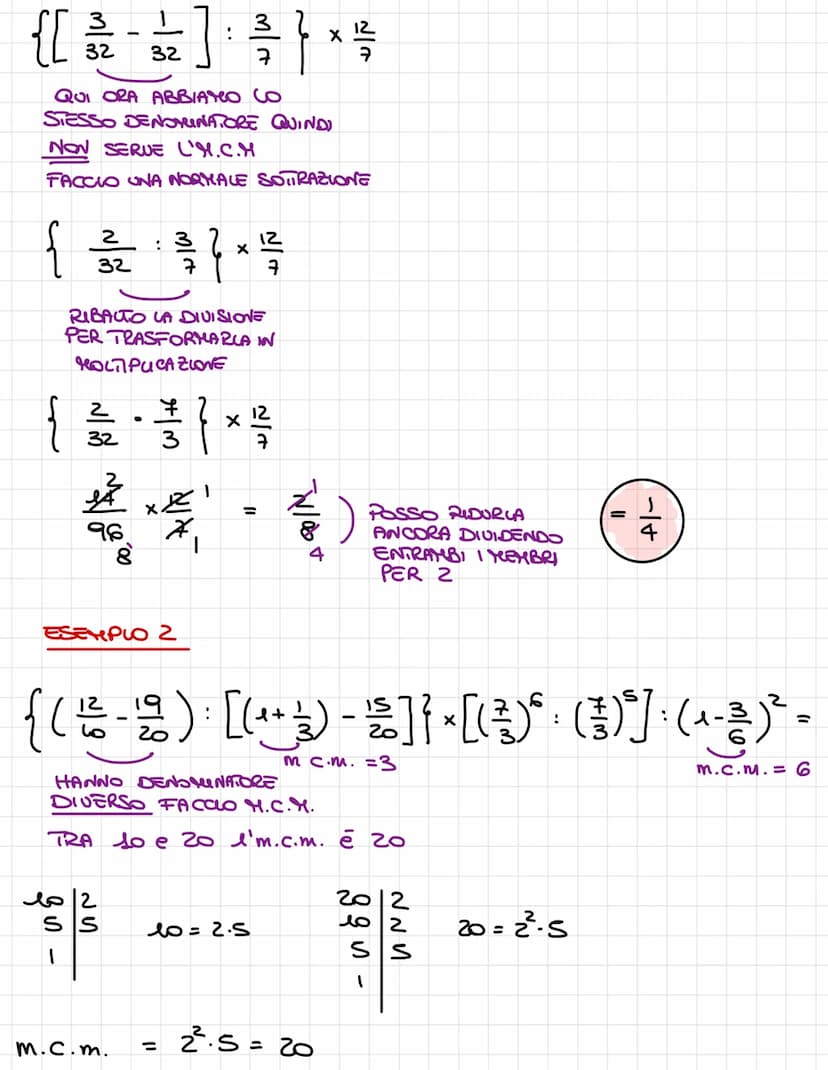 {[ 3/32 - 1/32 ] : 3/7 } × 12/7
QUI ORA ABBIAMO LO
STESSO DENOMINATORE QUINDI
NON SERVE L'M.C.M
FACCIO UNA NORMALE SOTTRAZIONE
{ 2/32 : 3/7 } × 12/7
RIBALTO LA DIVISIONE
PER TRASFORMARLA IN
MOLTIPLICAZIONE
{ 2/32 · 7/3 } × 12/7
2 1 1
14/96 × 12/7 = 2/8 ) POSSO RIDURLA = 1/4
8 1 4 ANCORA DIVIDENDO
ENTRAMBI I MEMBRI
PER 2
ESEMPIO 2
{( 12/10 - 19/20 ) : [(1 + 1/3) - 15/20 ]} × [(7/3)^6 : (7/3)^5] : (1 - 3/6)^2 =
m c.m. = 3 m.c.m. = 6
HANNO DENOMINATORE
DIVERSO FACCIO M.C.M.
TRA 10 e 20 l'm.c.m. è 20
10 | 2 20 | 2
5 | 5 10 = 2·5 10 | 2 20 = 2²·5
1 | 5 | 5
1 |
m.c.m. = 2²·5 = 20